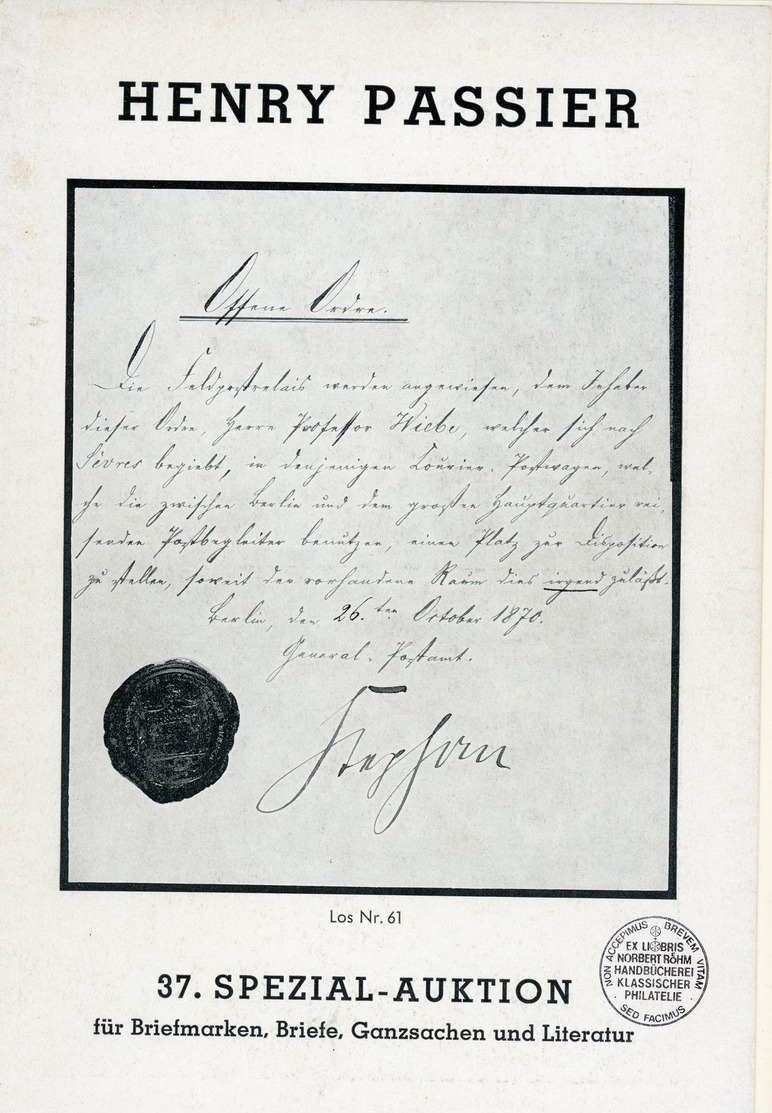 HENRY PASSIER
Offene Ordre.
Die Feldpostrelais werden angewiesen, dem Inhaber
dieser Ordre, Herrn Professor Wiebe, welcher sich nach
Sèvres begiebt, in denjenigen Courier-Postwagen, wel-
che die zwischen Berlin und dem großen Hauptquartier rei-
senden Postbegleiter benutzen, einen Platz zur Disposition
zu stellen, soweit der vorhandene Raum dies irgend zuläßt.
Berlin, den 26.ten October 1870.
General-Postamt.
Stephan
Los Nr. 61
NON ACCEPIMUS BREVEM VITAM
SED FACIMUS
EX LIBRIS
NORBERT RÖHM
HANDBÜCHEREI
KLASSISCHER
PHILATELIE
37. SPEZIAL-AUKTION
für Briefmarken, Briefe, Ganzsachen und Literatur